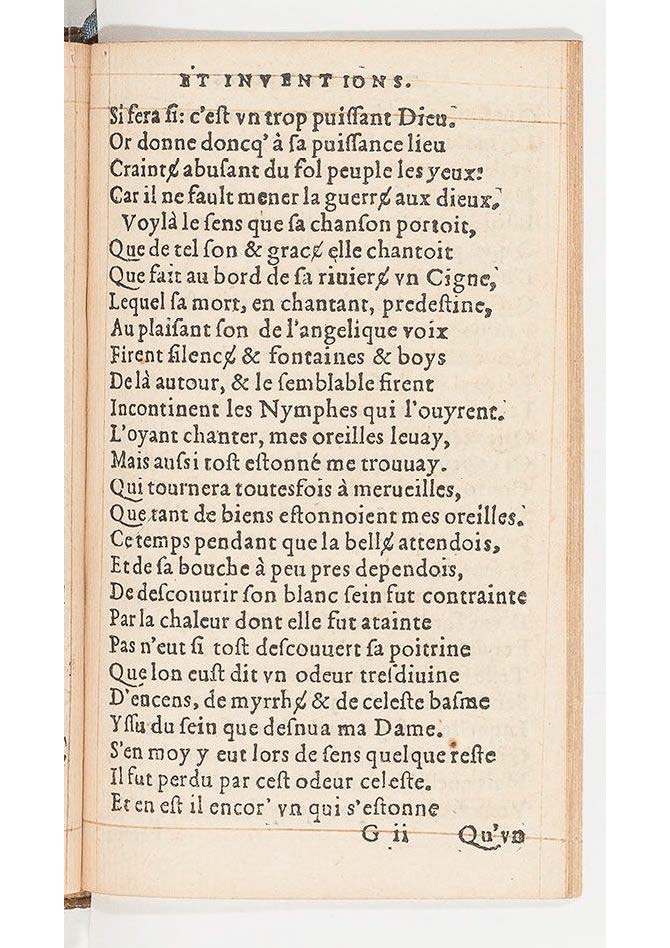 ET INVENTIONS.
Si fera ſi: c'eſt vn trop puiſſant Dieu.
Or donne doncq' à ſa puiſſance lieu
Craintɇ abuſant du fol peuple les yeux:
Car il ne fault mener la guerrɇ aux dieux.
Voylà le ſens que ſa chanſon portoit,
Que de tel ſon & gracɇ elle chantoit
Que fait au bord de ſa riuierɇ vn Cigne,
Lequel ſa mort, en chantant, predeſtine,
Au plaiſant ſon de l'angelique voix
Firent ſilencɇ & fontaines & boys
De là autour, & le ſemblable firent
Incontinent les Nymphes qui l'ouyrent.
L'oyant chanter, mes oreilles leuay,
Mais auſsi toſt eſtonné me trouuay.
Qui tournera toutesfois à merueilles,
Que tant de biens eſtonnoient mes oreilles.
Ce temps pendant que la bellɇ attendois,
Et de ſa bouche à peu pres dependois,
De deſcouurir ſon blanc ſein fut contrainte
Par la chaleur dont elle fut atainte
Pas n'eut ſi toſt deſcouuert ſa poitrine
Que lon euſt dit vn odeur treſdiuine
D'encens, de myrrhɇ & de celeſte baſme
Yſſu du ſein que deſnua ma Dame.
S'en moy y eut lors de ſens quelque reſte
Il fut perdu par ceſt odeur celeſte.
Et en eſt il encor' vn qui s'eſtonne
G ii Qu'vn